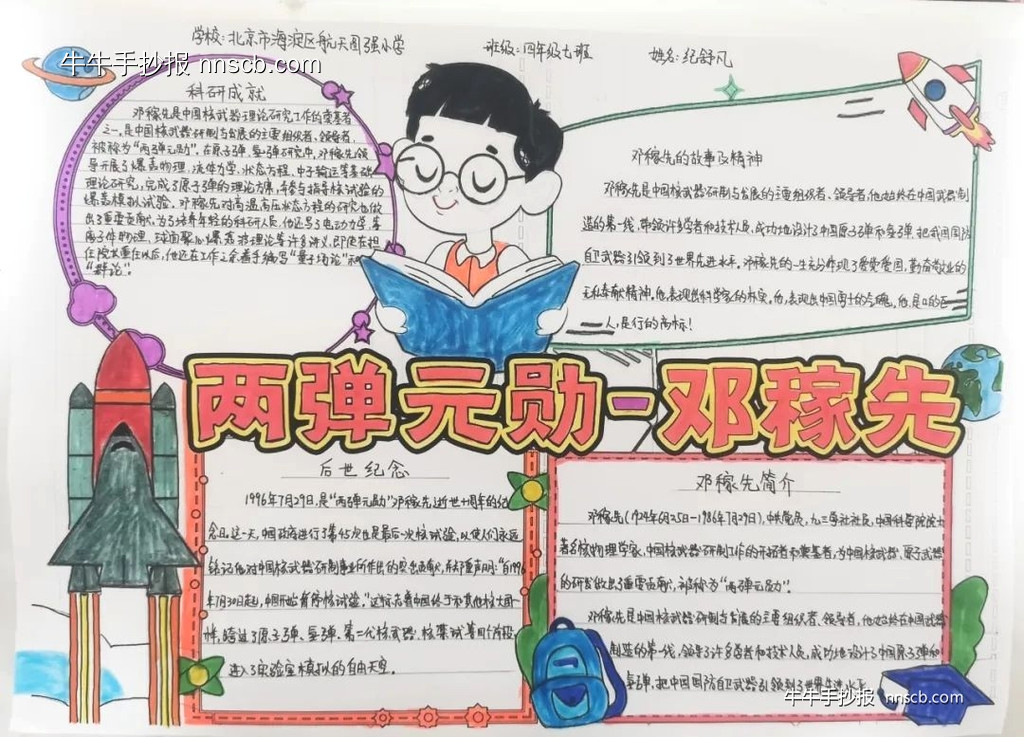 学校:北京市海淀区航天图强小学 班级:四年级七班 姓名:纪舒凡
牛牛手抄报 nnscb.com
科研成就
邓稼先是中国核武器理论研究工作的奠基者
之一,是中国核武器研制与发展的主要组织者、领导者,
被称为“两弹元勋”。在原子弹、氢弹研究中,邓稼先领
导开展了爆轰物理、流体力学、状态方程、中子输运等基础
理论研究,完成了原子弹的理论方案,并参与指导核试验的
爆轰模拟试验。邓稼先对高温高压状态方程的研究也做
出了重要贡献。为了培养年轻的科研人员,他还写了电动力学、等
离子体物理、球面聚心爆轰波理论等许多讲义,即使在担
任院长重任以后,他还在工作之余着手编写“量子场论”和
“群论”。
邓稼先的故事及精神
邓稼先是中国核武器研制与发展的主要组织者、领导者,他始终在中国武器制
造的第一线,带领许多学者和技术人员,成功地设计了中国原子弹和氢弹,把我国国防
自卫武器引领到了世界先进水平。邓稼先的一生充分体现了爱党爱国,勤奋敬业的
无私奉献精神。他,表现出科学家的朴实。他,表现出中国勇士的气魄。他,是口的巨
人,是行的高标!
两弹元勋-邓稼先
后世纪念
1996年7月29日,是“两弹元勋”邓稼先逝世十周年的纪
念日,这一天,中国政府进行了第45次也是最后一次核试验,以使人们永远
铭记他对中国核武器研制事业所作出的突出贡献,并郑重声明:“自1996
年7月30日起,中国开始暂停核试验。”这标志着中国终于和其他核大国一
样,跨过了原子弹、氢弹、第二代核武器、核禁试等阶段,
进入了实验室模拟的自由天空。
邓稼先简介
邓稼先(1924年6月25日-1986年7月29日),中共党员,九三学社社员,中国科学院院士
著名核物理学家,中国核武器研制工作的开拓者和奠基者,为中国核武器、原子武器
的研发做出了重要贡献,被称为“两弹元勋”。
邓稼先是中国核武器研制与发展的主要组织者、领导者,他始终在中国武器
制造的第一线,领导了许多学者和技术人员,成功地设计了中国原子弹和
氢弹,把中国国防自卫武器引领到了世界先进水平
牛牛手抄报 nnscb.com